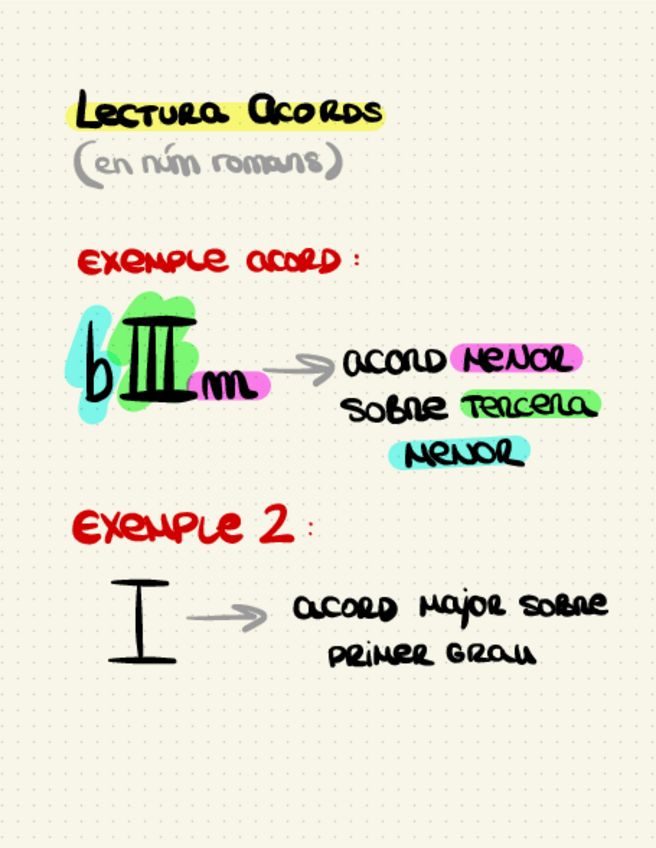 Lectura acords
(en núm romans)
Exemple acord:
bIIIm → acord menor
sobre tercera
menor
Exemple 2:
I → acord major sobre
primer grau